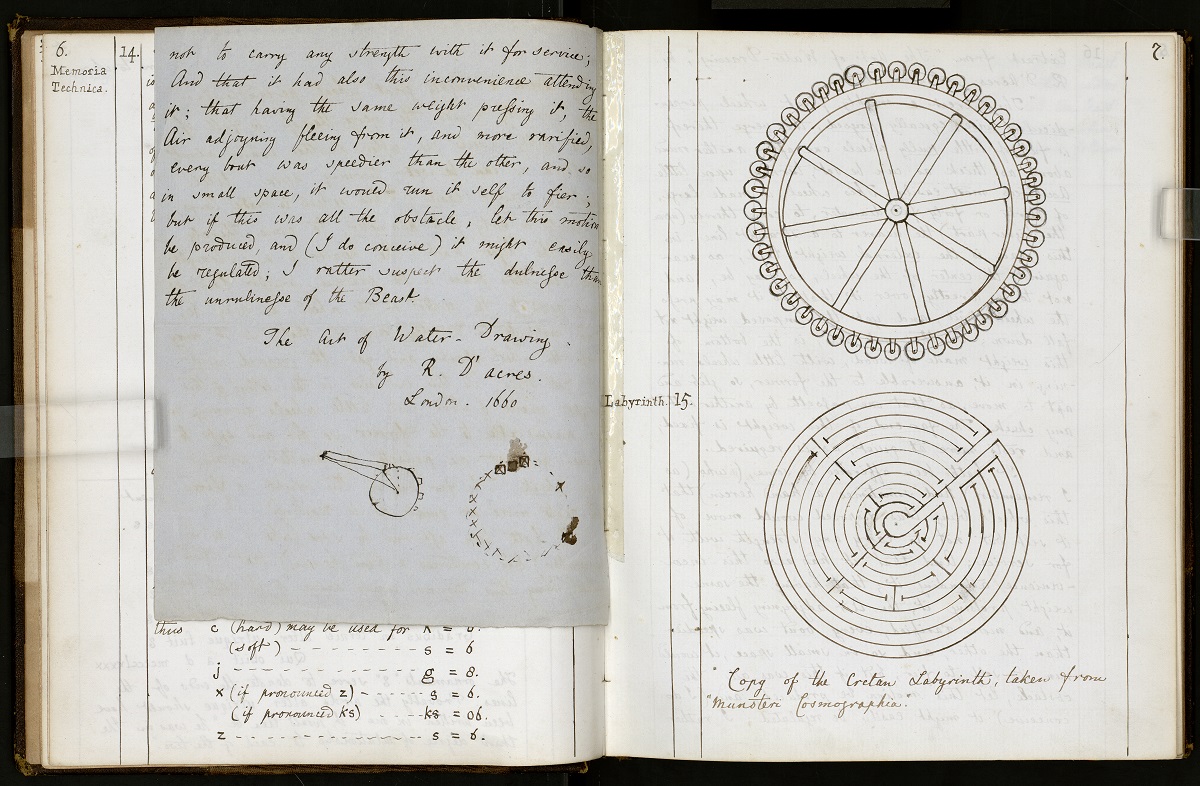 6.
14.
Memoria
Technica.
not to carry any strength with it for service;
And that it had also this inconvenience attending
it; that having the same weight pressing it, the
Air adjoyning fleeing from it, and more rarified,
every bout was speedier than the other, and so
in small space, it would run it self to fier;
but if this was all the obstacle, let this motion
be produced, and (I do conceive) it might easily
be regulated; I rather suspect the dulnesse than
the unrulinesse of the Beast.
The Art of Water-Drawing.
by R. D'acres.
London. 1660
thus c (hard) may be used for k = 8.
(soft) - - - - - - - - - s = 6
j - - - - - - - - - - - - g = 8.
x (if pronounced z) - - - - - s = 6.
(if pronounced ks) - - - - ks = 06.
z - - - - - - - - - - - - s = 6.
7.
Labyrinth. 15.
Copy of the Cretan Labyrinth, taken from
"Munsteri Cosmographia."